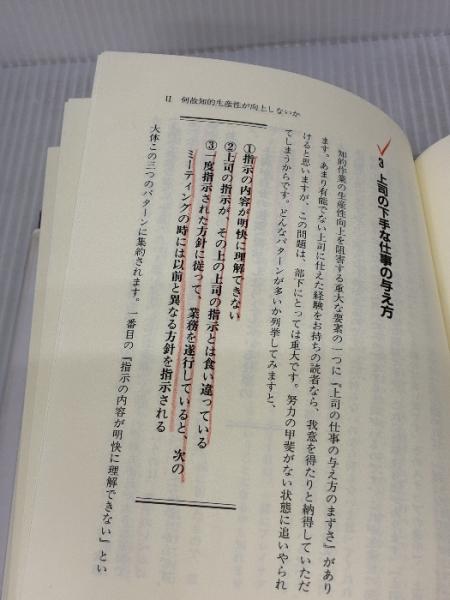 II 何故知的生産性が向上しないか
3 上司の下手な仕事の与え方
知的作業の生産性向上を阻害する重大な要素の一つに『上司の仕事の与え方のまずさ』があり
ます。あまり有能でない上司に仕えた経験をお持ちの読者なら、我意を得たりと納得していただ
けると思いますが、この問題は、部下にとっては重大です。努力の甲斐がない状態に追いやられ
てしまうからです。どんなパターンが多いか列挙してみますと、
①指示の内容が明快に理解できない
②上司の指示が、その上の上司の指示とは食い違っている
③一度指示された方針に従って、業務を遂行していると、次の
ミーティングの時には以前と異なる方針を指示される
大体この三つのパターンに集約されます。一番目の『指示の内容が明快に理解できない』とい